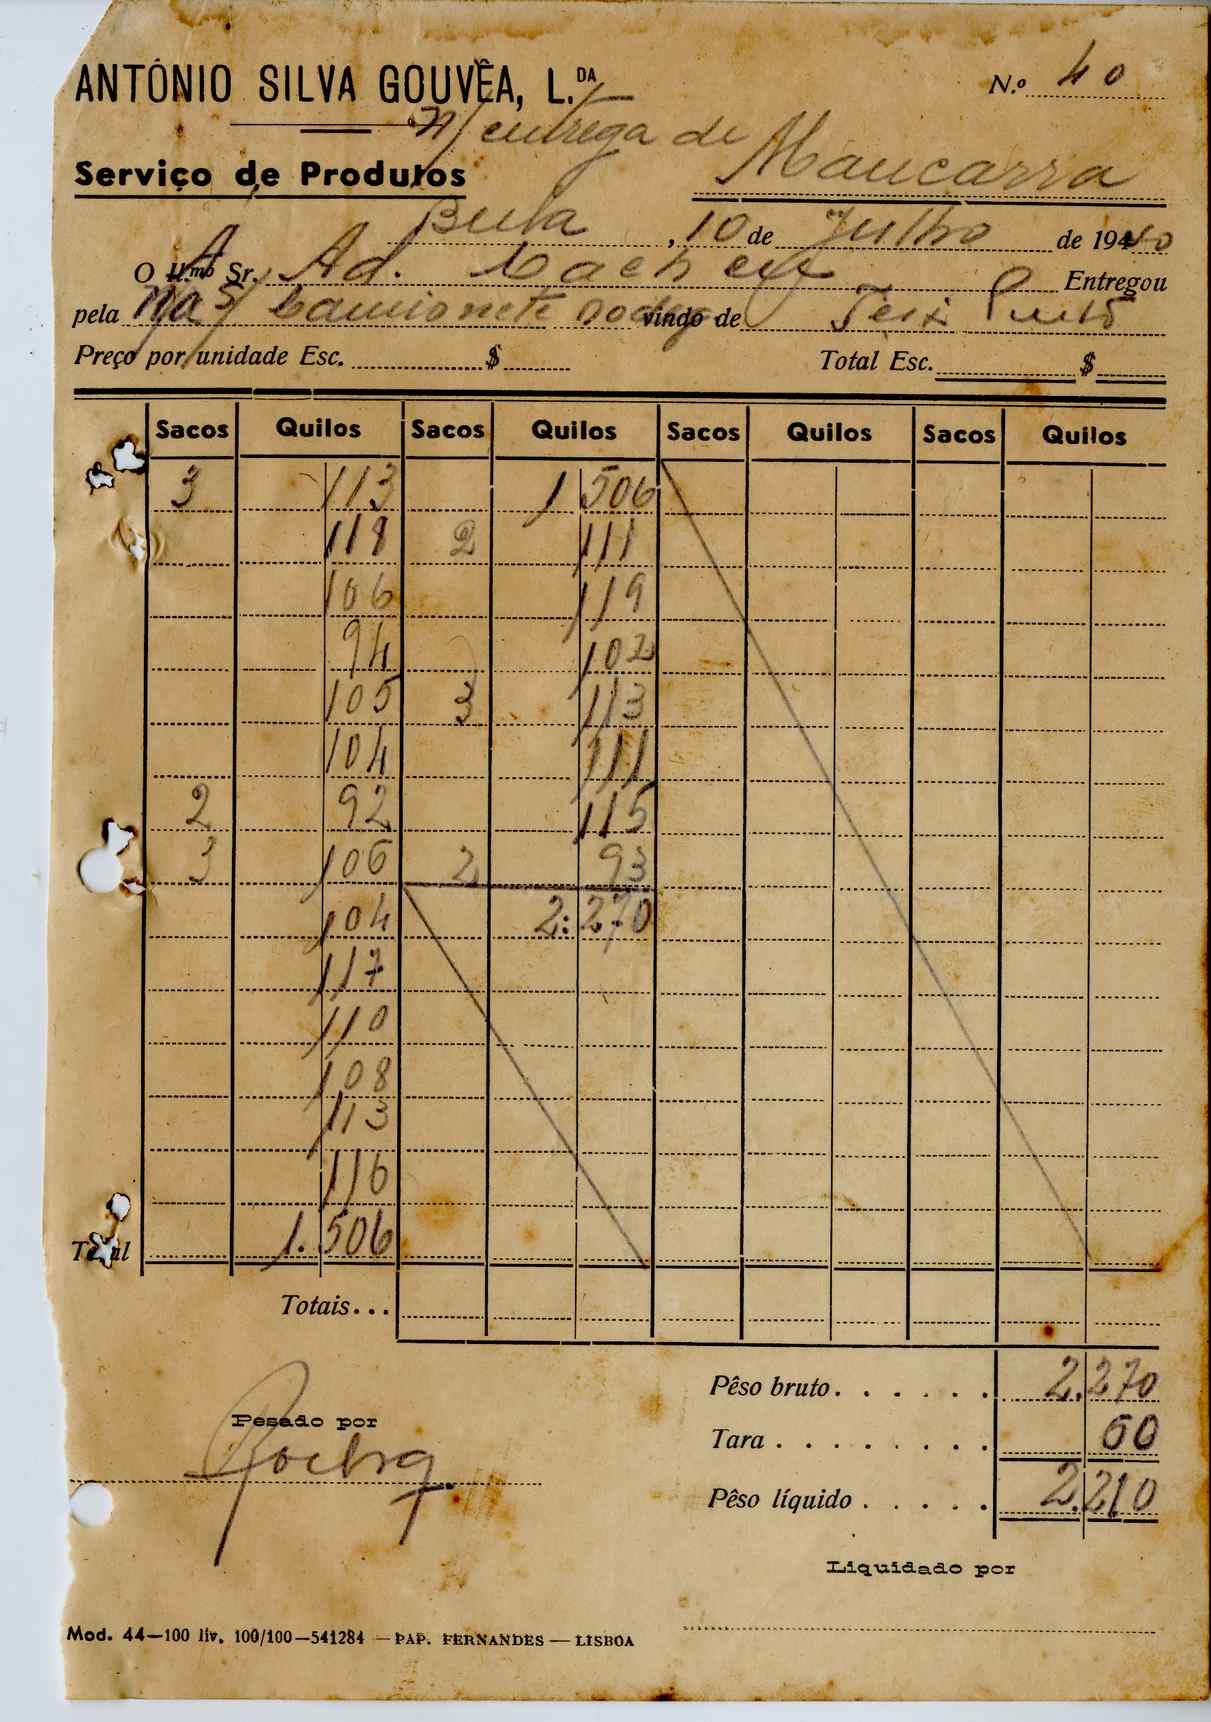 ANTÓNIO SILVA GOUVÊA, L.DA
N.º 40
N/ entrega de
Serviço de Produtos
Mancarra
Bula, 10 de Julho de 1940
O Il.mo Sr. A Ad. Cacheu Entregou
pela N/ Camionete Dodge vindo de Teix. Pinto
Preço por unidade Esc. $ Total Esc. $
Sacos Quilos Sacos Quilos Sacos Quilos Sacos Quilos
3 113 1 506
118 2 111
106 119
94 102
105 3 113
104 111
2 92 115
3 106 2 93
104 2:270
117
110
108
113
116
Total 1.506
Totais...
Pêso bruto . . . . . . 2.270
Pesado por
Tara . . . . . . . . . 60
Rocha
Pêso líquido . . . . . 2.210
Liquidado por
Mod. 44—100 liv. 100/100—541284 — PAP. FERNANDES — LISBOA